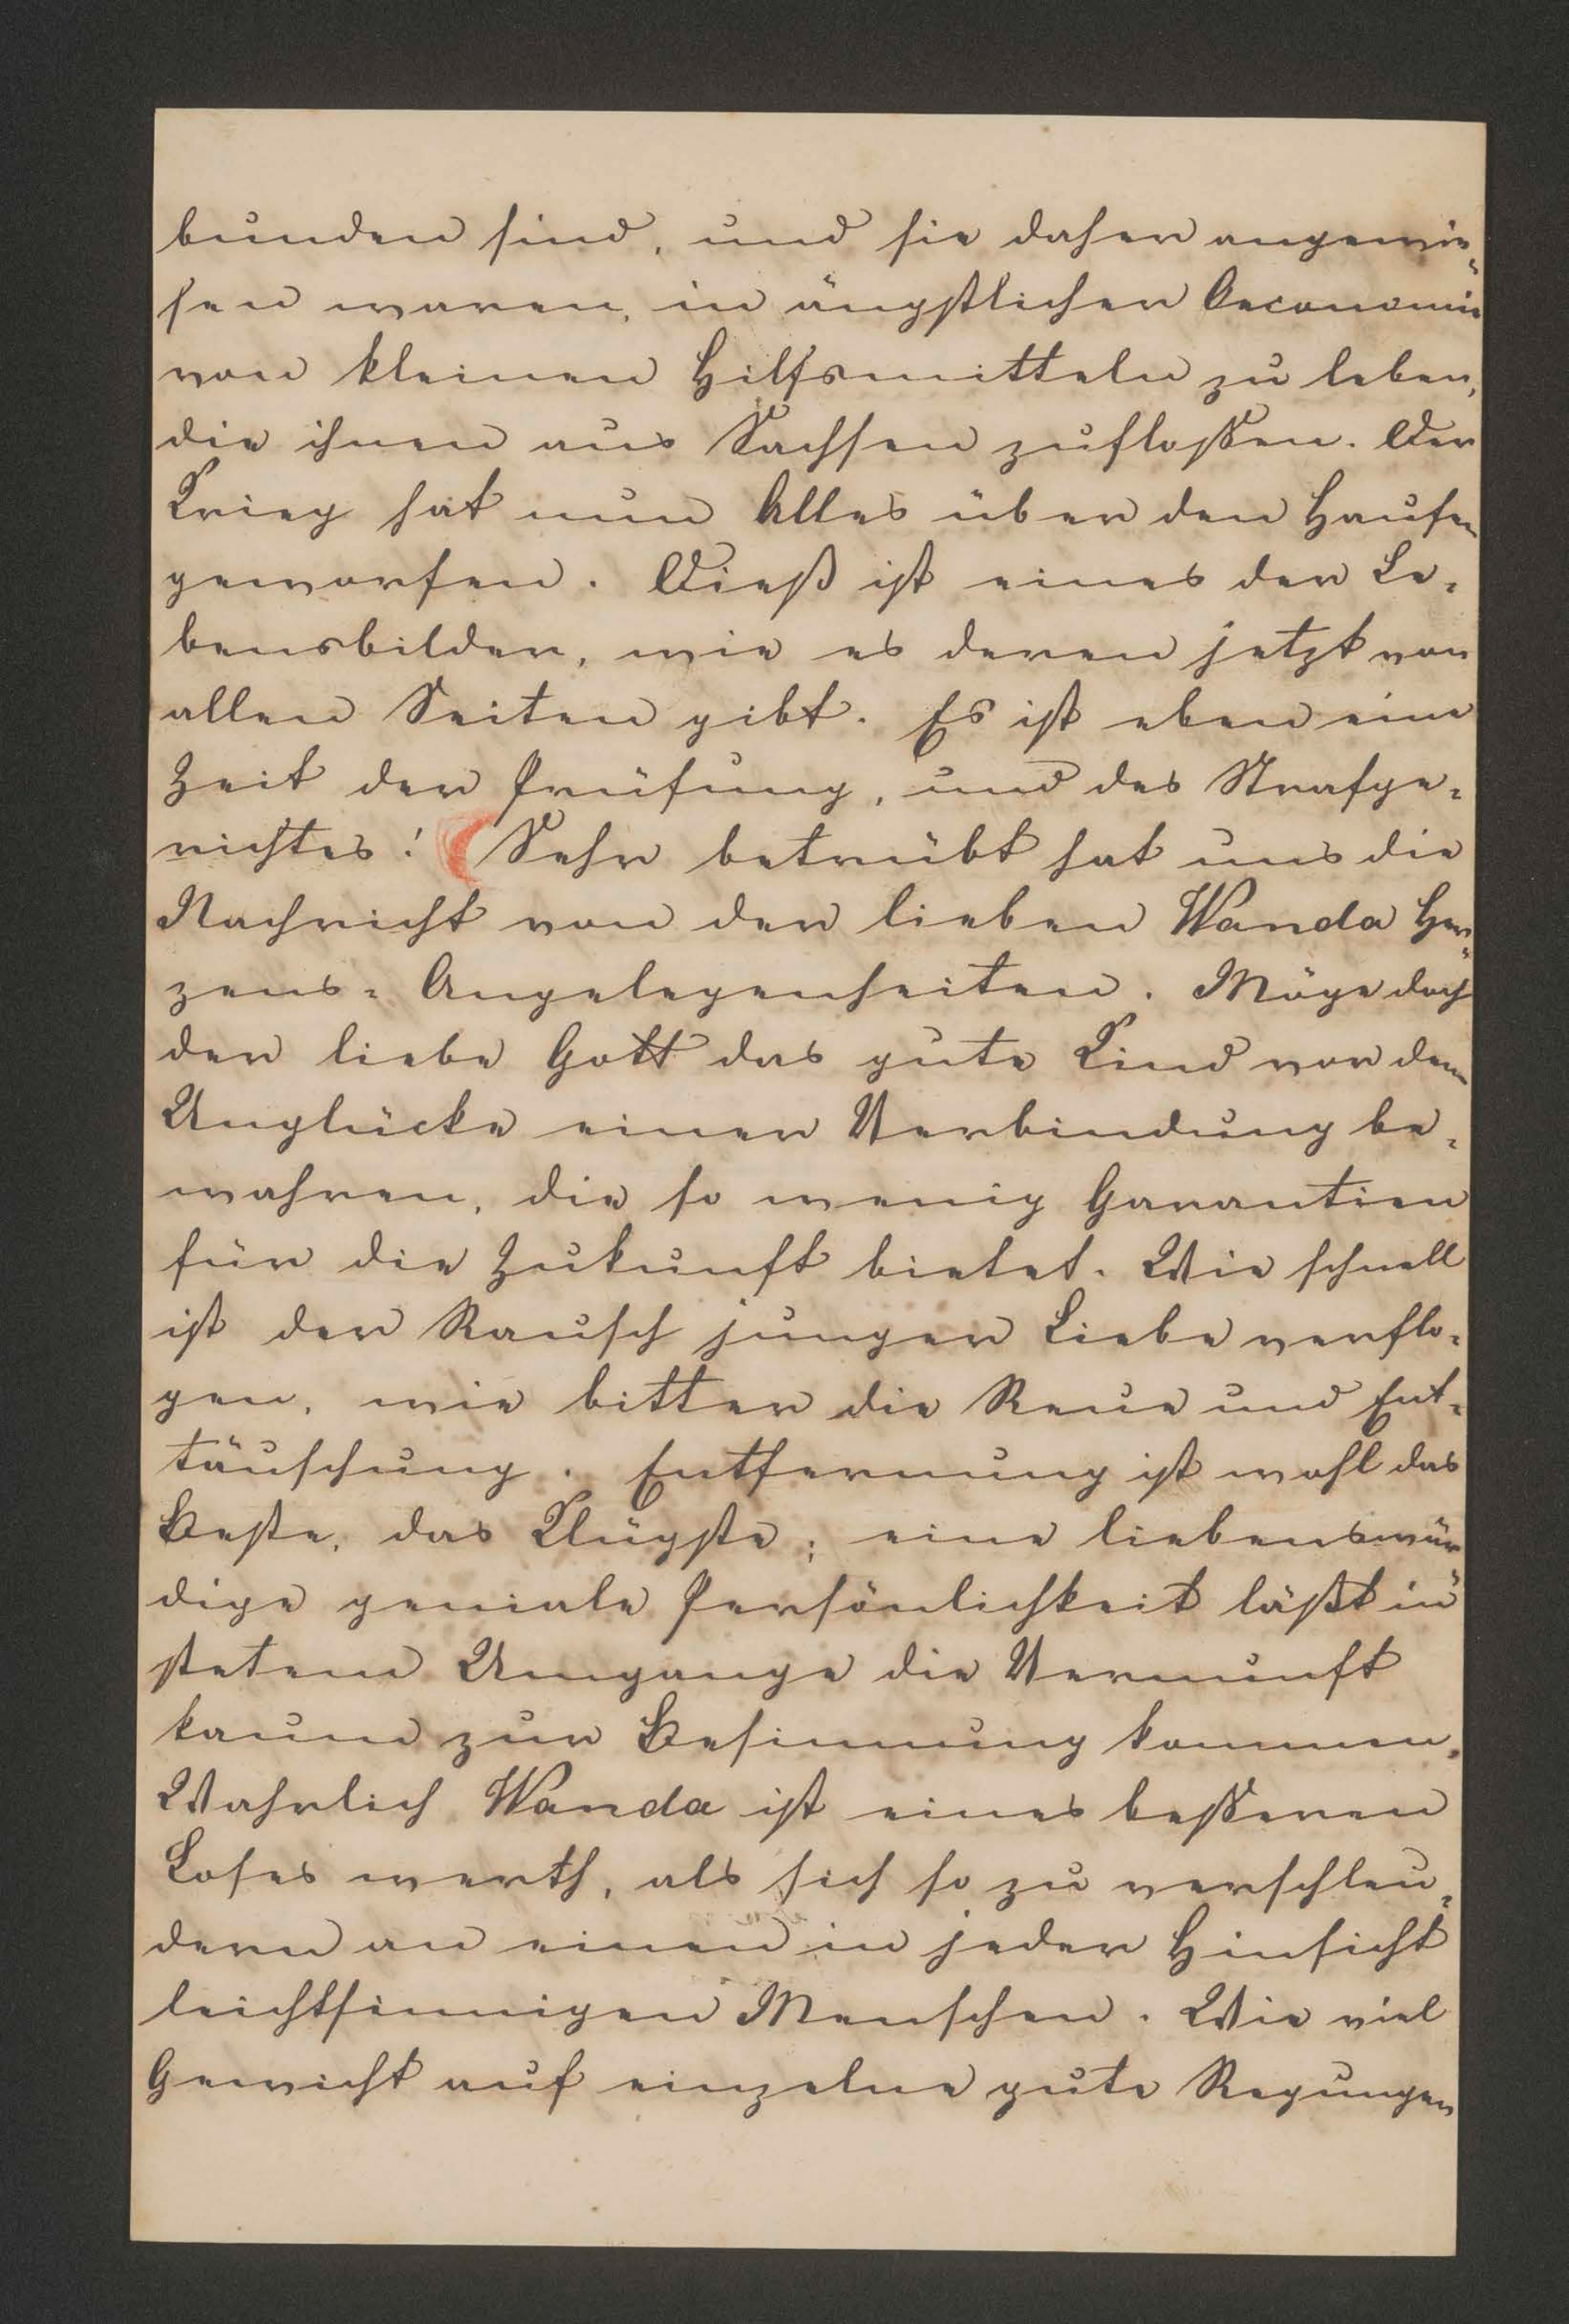 bunden sind, und sie daher angewie=
sen waren, in ängstlicher Oeconomie
von kleinen Hilfsmitteln zu leben,
die ihnen aus Sachsen zufloßen. Der
Krieg hat nun Alles über den Haufen
geworfen. Dieß ist eines der Le=
bensbilder, wie es deren jetzt von
allen Seiten gibt. Es ist eben eine
Zeit der Prüfung, und des Strafge=
richtes! (Sehr betrübt hat uns die
Nachricht von der lieben Wanda Her=
zens= Angelegenheiten. Möge doch
der liebe Gott das gute Kind vor dem
Unglücke einer Verbindung be=
wahren, die so wenig Garantien
für die Zukunft bietet. Wie schnell
ist der Rausch junger Liebe verflo=
gen, wie bitter die Reue und Ent=
täuschung. Entfernung ist wohl das
Beste, das Klügste; eine liebenswür=
dige geniale Persönlichkeit läßt in
stetem Umgange die Vernunft
kaum zur Besinnung kommen.
Wahrlich Wanda ist eines beßeren
Loses werth, als sich so zu verschleu=
dern an einen in jeder Hinsicht
leichtsinnigen Menschen. Wie viel
Gewicht auf einzelne gute Regungen